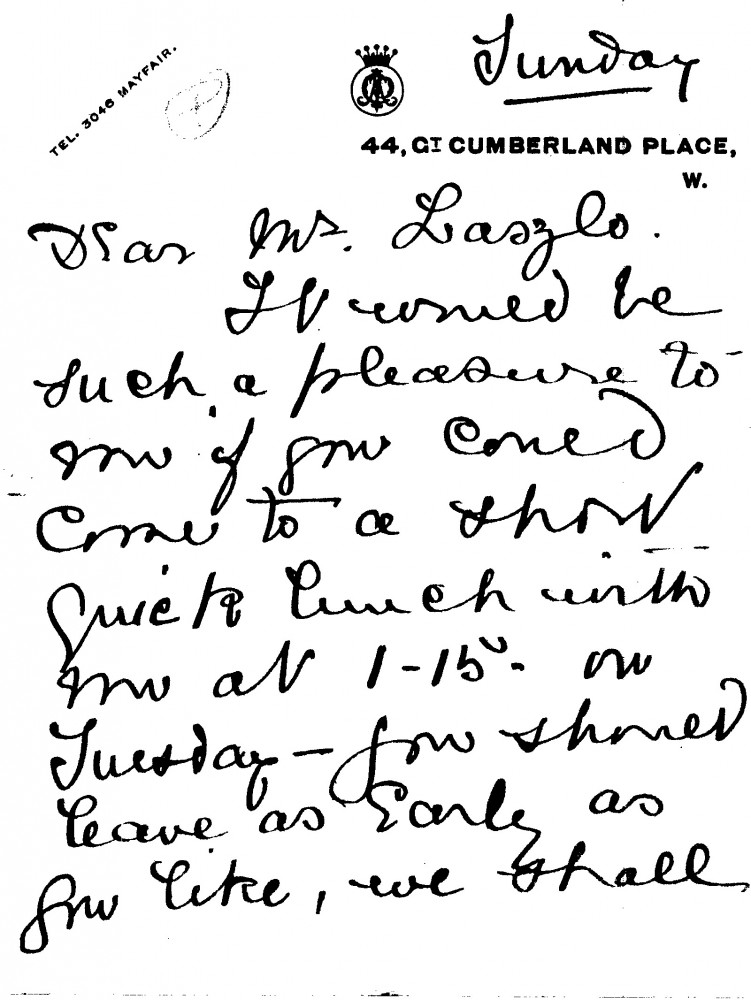 TEL. 3046 MAYFAIR.
Sunday
44, GT CUMBERLAND PLACE,
W.
Dear Mr. Laszlo.
It would be
such a pleasure to
me if you could
come to a short
quick lunch with
me at 1-15 - on
Tuesday - you should
leave as early as
you like, we shall